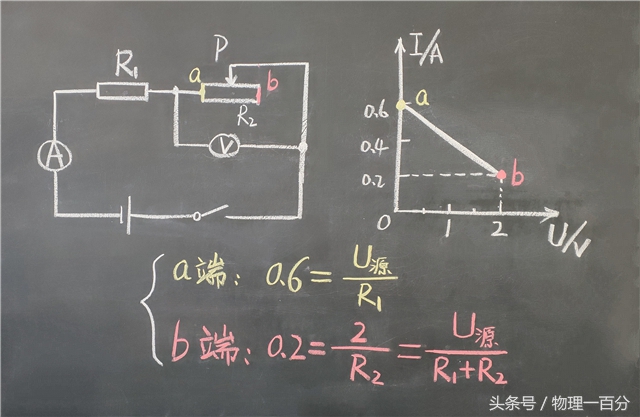 R₁
a
P
b
R₂
V
A
I/A
0.6
a
0.4
0.2
b
0
1
2
U/V
a端: 0.6 = U源/R₁
b端: 0.2 = 2/R₂ = U源/(R₁+R₂)
头条号 / 物理一百分